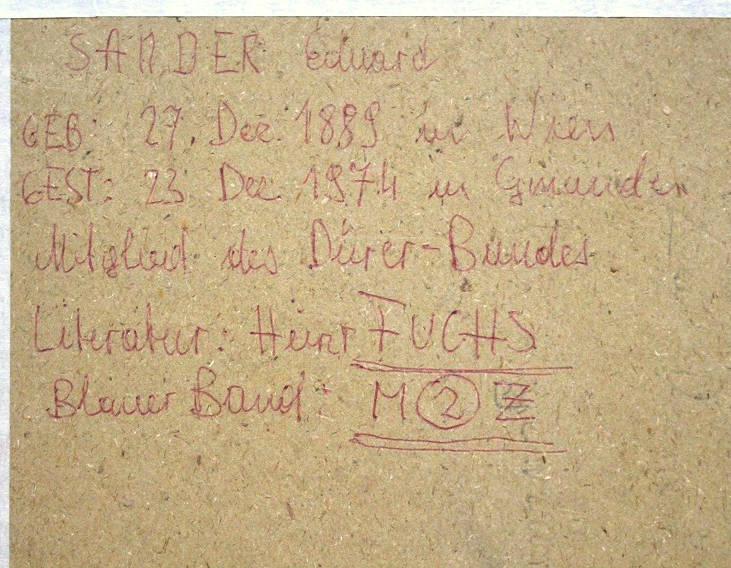 SANDER Eduard
GEB: 27. Dez. 1889 in Wien
GEST: 23 Dez 1974 in Gmunden
Mitglied des Dürer-Bundes.
Literatur: Heinz FUCHS
Blauer Band: M 2 Z